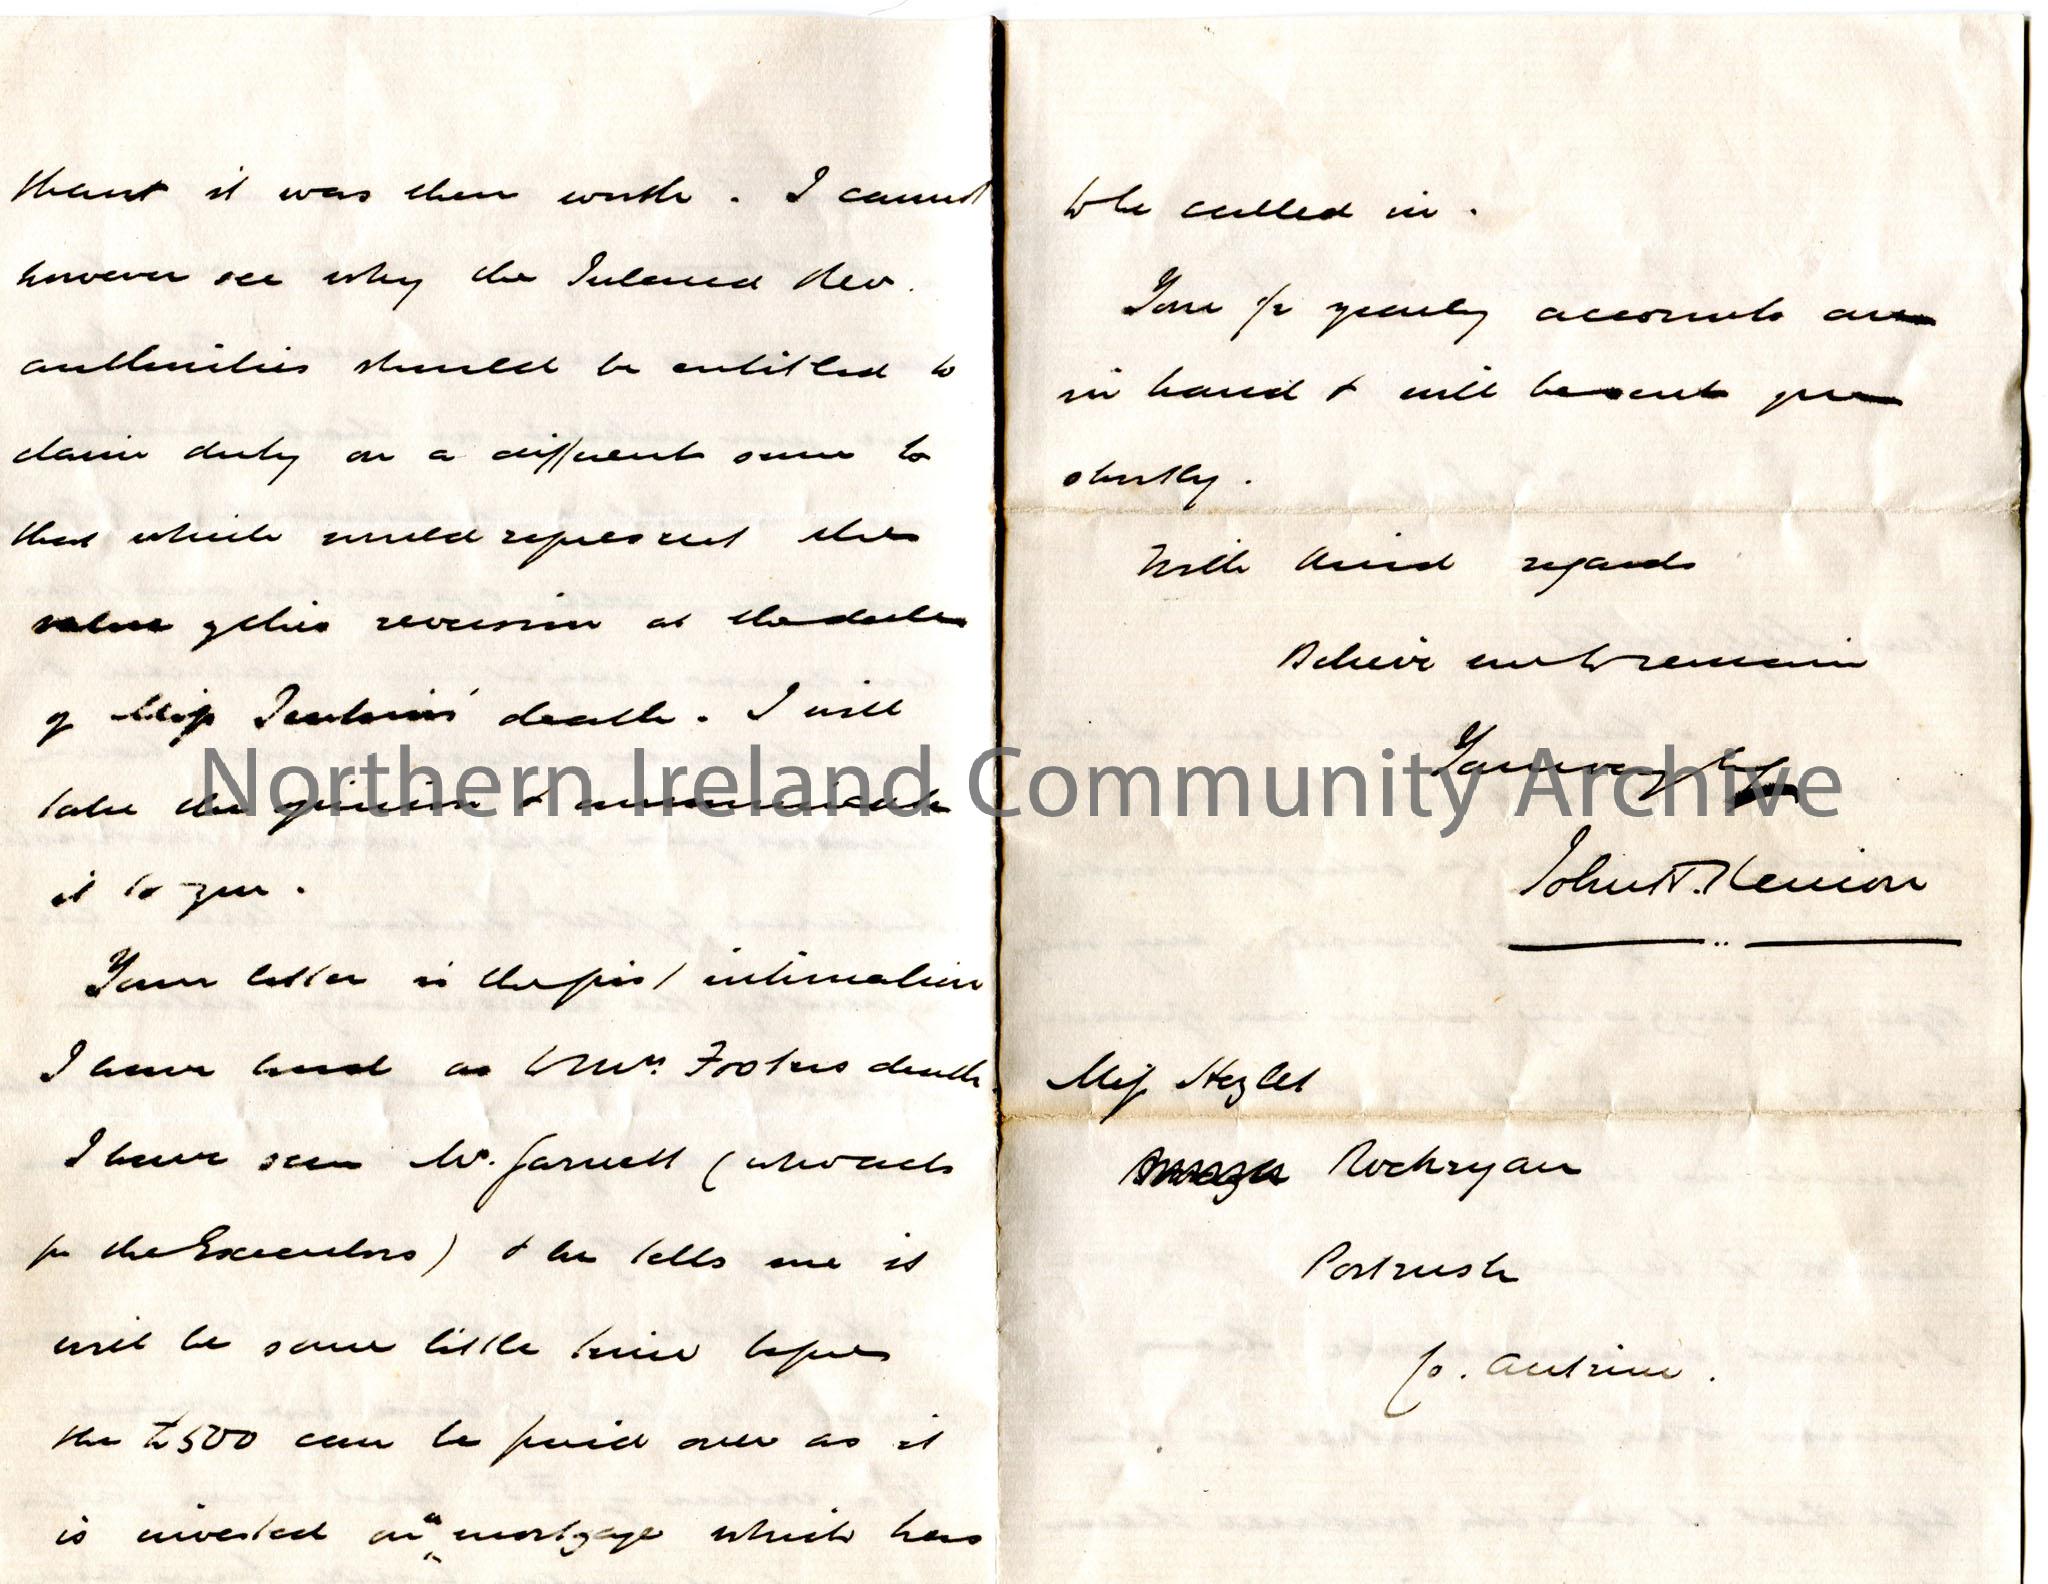 thant it was then worth. I cannot
however see why the Inland Rev.
authorities should be entitled to
claim duty on a different sum to
that which would represent the
value of this reversion at the date
of Miss Jenkins' death. I will
take the opinion & communicate
it to you.
Your letter is the first intimation
I have had as to Mrs. Fosters death.
I have seen Mr. Garnett (who acts
for the Executors) & he tells me it
will be some little time before
the £500 can be paid over as it
is invested on a mortgage which has
to be called in.
Your ½ yearly accounts are
in hand & will be sent you
shortly.
With kind regards
Believe me to remain
Yours very truly
John H. Kenion
Miss Hezlet
Rockryan
Portrush
Co. Antrim.
Northern Ireland Community Archive